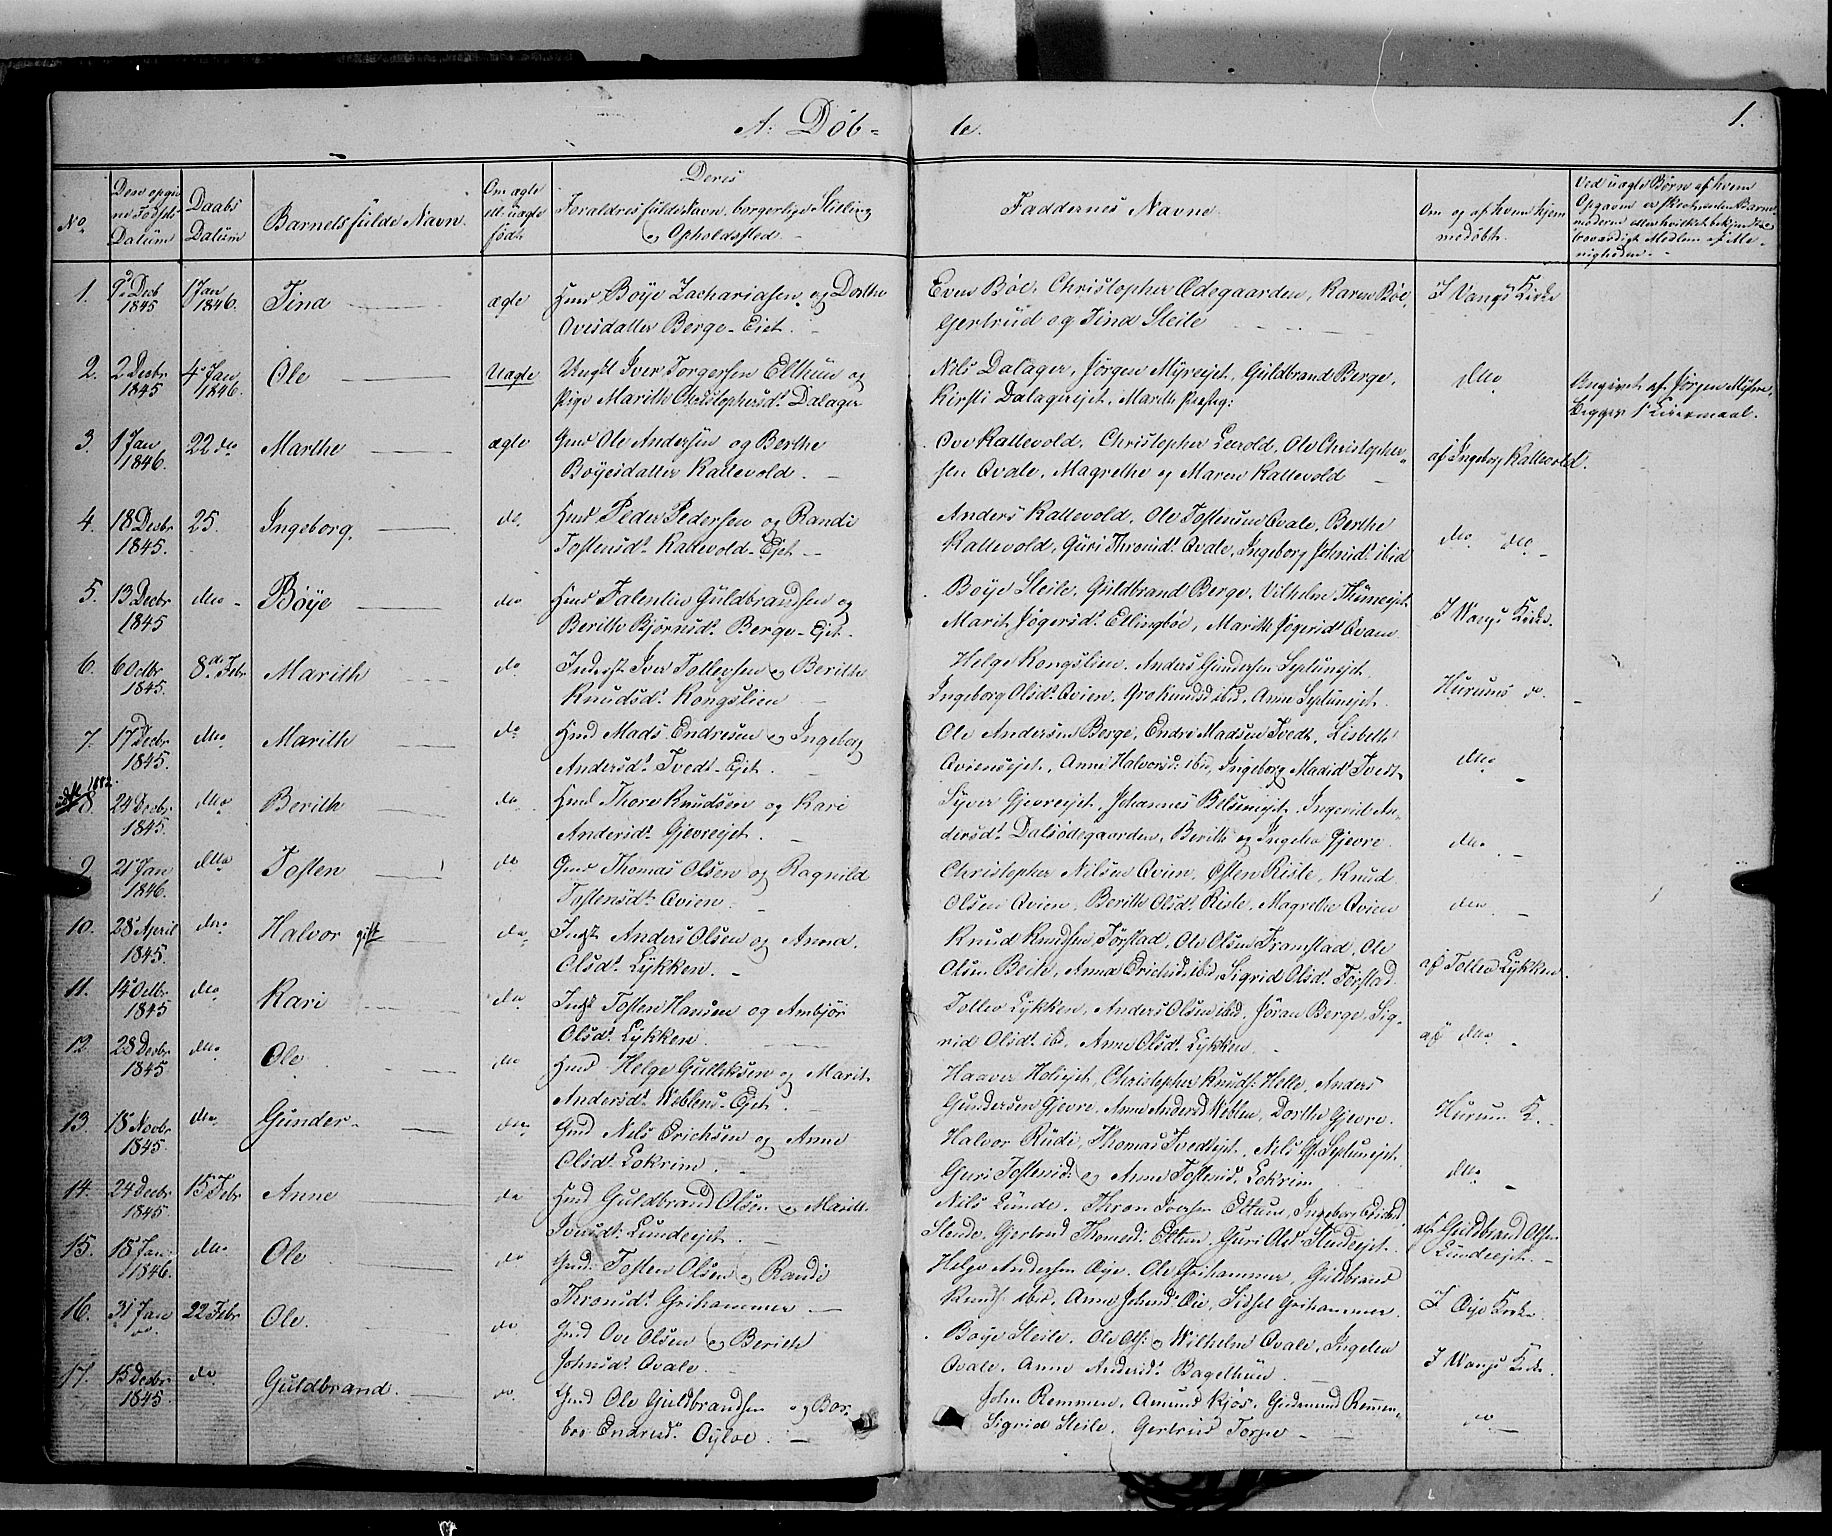 A: Døb-
te.
1.
No
Den opgiv
ne Fødsels
Datum
Daabs
Datum
Barnets fulde Navn.
Om ægte
ell. uægte
født
Deres
Forældres fulde Navn, borgerlige Stilling
og Opholdssted.
Faddernes Navne.
Om og af hvem hjem
medøbt.
Ved uægte Børn af hvem
1. 9de Decb 1845 1 Jan 1846. Tina ægte
Boye Zachariasen og Dorthe
Ovesdatter Berge-Eiet.
Even Bøe, Christopher Ødegaarden, Karen Bøe,
Gertrud og Tina Steile
I Vangs Kirke
2. 2 Decbr 1845 4 Jan 1846. Ole Uægte
Ungk Iver Torgersen Elthun og
Pige Marith Christophersd. Dalager
Nils Dalager, Jørgen Myreejet, Guldbrand Berge,
Kirsti Dalagerejet, Marith
dto
Angivet af Jørgen Myhre,
Begges 1ste Leiermaal.
3. 1 Jan 1846. 22 do Marthe ægte
Gmd Ole Andersen og Berthe
Boyesdatter Kattevold.
Ove Kattevold, Christopher Leerold, Ole Christopher-
sen Qvale, Magrethe og Maren Kattevold
af Ingeborg Kattevold.
4. 18 Decbr 1845. 25. Ingeborg. do.
Hmd Peder Pedersen og Randi
Tostensd. Kattevold-Ejet.
Anders Kattevold, Ole Tostensen Qvale, Berthe
Kattevold, Guri Thronsd. Qvale, Ingeborg Johnsd. ibid
dto dto
5. 13 Decbr 1845 dto Boye dto
Hmd Falentin Guldbrandsen og
Berith Bjørnsd. Berge-Ejet.
Boye Steile, Guldbrand Berge, Vilhelm Thuneejet
Marit Jøgersd. Ellingbøe, Marith Jøgersd Qvam
I Wangs Kirke.
6. 6 Octbr 1845. 8de Febr Marith do
Inderst Iver Tollevsen og Berith
Knudsd. Kongslien
Helge Kongslien, Anders Gundersen
Ingeborg Olsd. Qvien, Gro Knudsd ibid, Anne
Hurums do.
7. 17 Decbr 1845. dto Marith do
Hmd Mads Endresen og Ingeborg
Andersd. Tvedt-Ejet.
Ole Andersen Berge, Endre Madsen Tvedt, Lisbeth
Qviensejet, Anne Halvorsd: ibid, Ingeborg Madsd. Tvedt
dto
8. 24 Decbr 1845. dto Berith do
Hmd Thore Knudsen og Kari
Andersd. Gjevreejet.
Syver Gjevreejet, Johannes Belsumejet, Ingerid An-
dersd. Dalsødegaarden, Berith og Ingelev Gjevre.
dto.
9. 21 Jan 1846. dto Tosten do
Gmd Thomas Olsen og Ragnild
Tostensd. Qvien.
Christopher Nilsen Qvien, Østen Risle, Knud
Olsen Qvien, Berith Olsd. Risle, Magrethe Qvien
dto
10. 28 April 1845. dto Halvor gift do
Inst Anders Olsen og Anna
Olsd. Lykken.
Knud Knudsen Tørstad, Ole Olsen Framstad, Ole
Olsen Beile, Anne Erichsd. ibid, Sigrid Olsd. Tørstad
af Tollev Lykken.
11. 14 Octbr 1845 dto Kari do
Inst Tosten Hansen og Ambjør
Olsd. Lykken.
Tollev Lykken, Anders Olsen ibid, Jøran Berge, Sig-
rid Olsd. ibd, Anne Olsd. Lykken
af dto
12. 28 Decbr 1845 dto Ole dto
Hmd Helge Gulliksen og Marit
Andersd. Weblens-Ejet.
Haaver Holiejet, Christopher Knuds: Helle, Anders
Gundersen Gjevre, Anne Andersd Weblen, Dorthe Gjevre.
Hurum K.
13. 18 Novbr 1845. dto Gunder do
Gmd Nils Erichsen og Anne
Olsd. Lokrim.
Halvor Rudi, Thomas Tvedtejet, Nils
Guri Tostensd: og Anne Tostensd. Lokrim
dto
14. 24 Decbr 1845. 15 Febr Anne do
Hmd Guldbrand Olsen og Marith
Lundeejet.
Nils Lunde, Thron Iversen Eltun, Ingeborg Erichsd.
Stende, Gjertrud Thomasd: Eltun, Guri Olsd. Stendeejet.
af Guldbrand Olsen
Lundeejet.
15. 18 Jan 1846. dto Ole do
Gmd. Tosten Olsen og Randi
Thronsd. Grihammer
Helge Andersen Øye, Ole Grihammer, Guldbrand
Knuds: ibid, Anne Johnsd. Øie, Sidsel Grihammer.
I Øye Kirke.
16. 31 Jan do. 22 Febr Ole. do
Gmd Ove Olsen og Berith
Johnsd. Qvale.
Boye Steile, Ole Ols: og Wilhelm Qvale, Ingelev
Qvale, Anne Andersd. Bagethun
I Wangs Kirke.
17. 15 Decbr 1845. do Guldbrand. do.
Gmd Ole Guldbrandsen og Bar-
bro Endresd. Øyloe.
John Remmen, Amund Kjøs, Gudmund Remmen-
Sigrid Steile, Gertrud Torpe
do